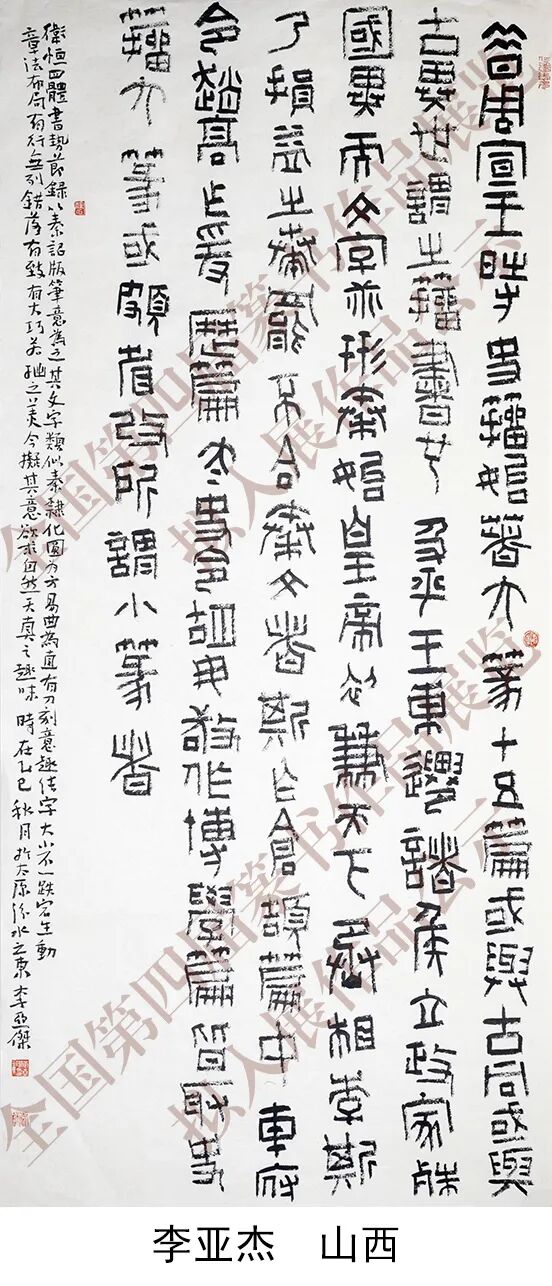 昔周宣王時史籀始著大篆十五篇或與古同或與
古異世謂之籀書者也及平王東遷諸侯立政家殊
國異而文字乖形秦始皇帝初兼天下丞相李斯
乃損益之奏罷不合秦文者斯作倉頡篇中車府
令趙高作爰歷篇太史令胡毋敬作博學篇皆取史
籀大篆或頗省改所謂小篆者
衛恒四體書勢節錄以秦詔版筆意爲之其文字類似秦隸化圓爲方易曲為直有刀刻意趣佳字大小不一跌宕生動
章法布局有行無列錯落有致有大巧若拙之美今擬其意欲求自然天真之趣味 時在乙巳秋月於太原汾水之東李亞傑
全国第四届篆书作品展览
拟入展作品公示
李亚杰 山西